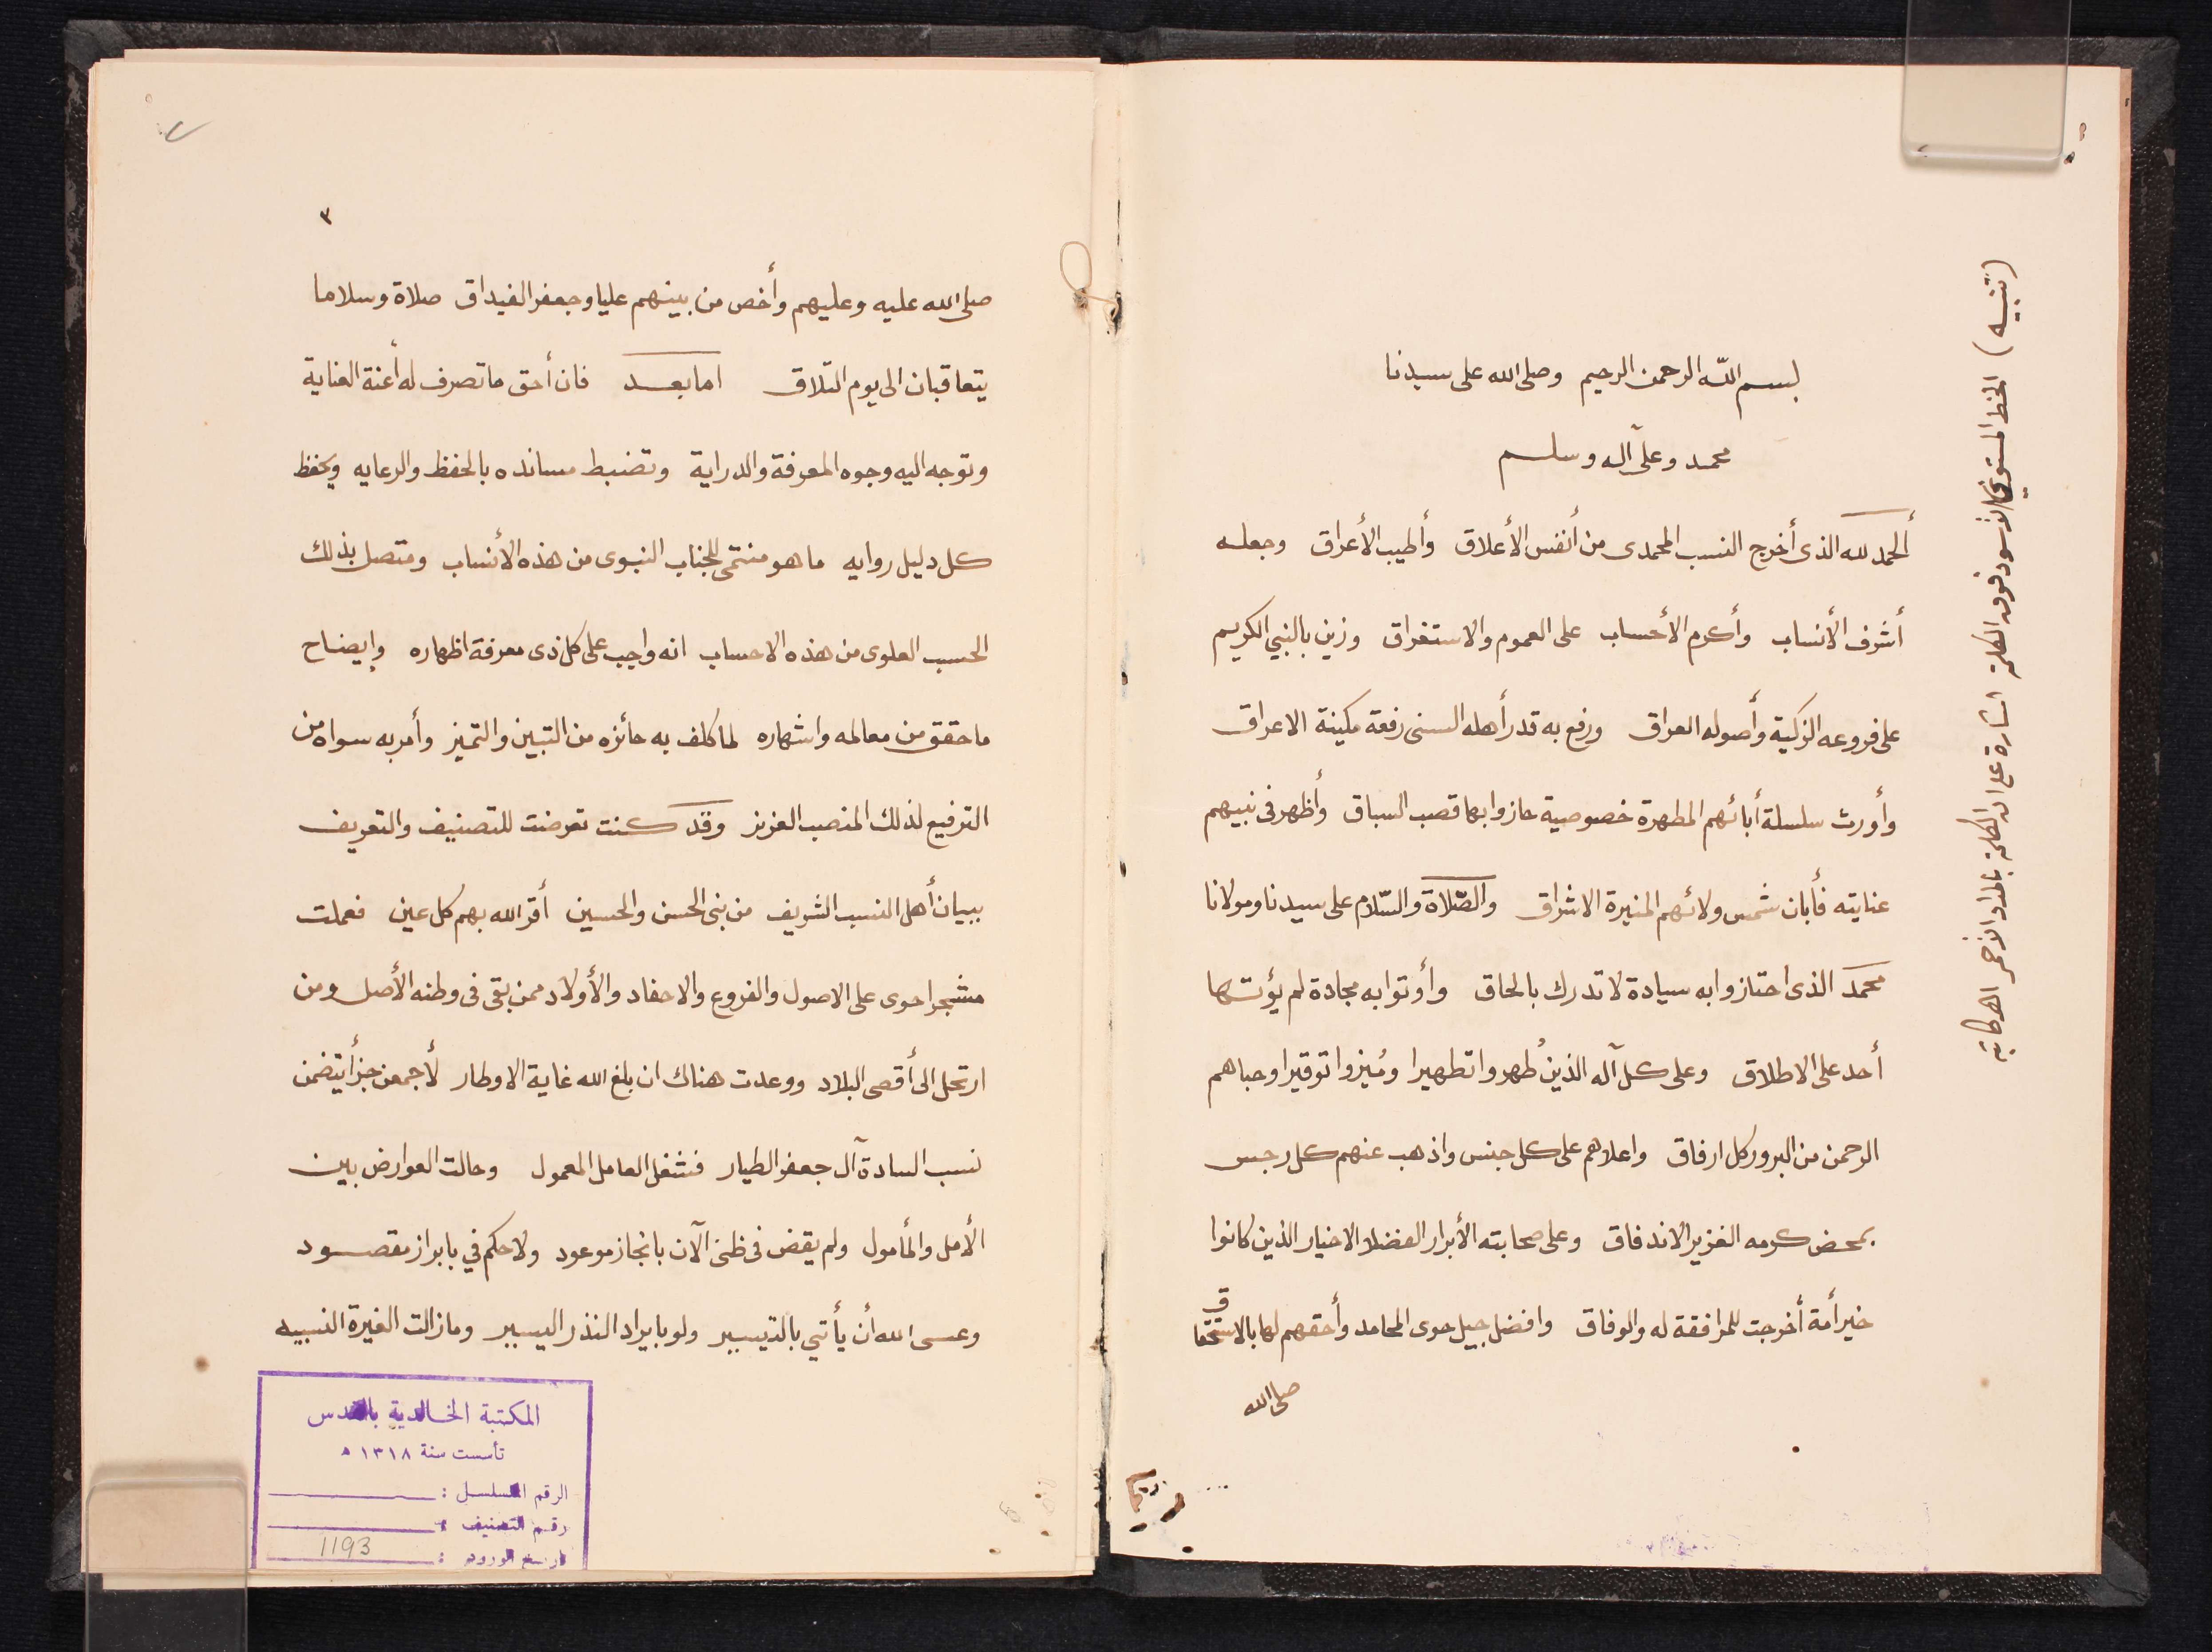 بسم الله الرحمن الرحيم وصلى الله على سيدنا
محمد وعلى آله وسلم
ألحمد لله الذى أخرج النسب المحمدى من أنفس الأعلاق وأطيب الأعراق وجعله
أشرف الأنساب وأكرم الأحساب على العموم والاستغراق وزين بالنبي الكريم
على فروعه الزكية وأصوله العراق ورفع به قدر أهله السنى رفعة مكينة الاعراق
وأورث سلسلة أبائهم المطهرة خصوصية حازوا بها قصب السباق وأظهر فى نبيهم
عنايته فأبان شمس ولائهم المنيرة الاشراق والصّلاة والسّلام على سيدنا ومولانا
محمد الذى احتازوا به سيادة لا تدرك بالحاق وأوتوا به مجادة لم يؤتها
أحد على الاطلاق وعلى كل آله الذين طُهروا تطهيرا ومُيزوا توقيرا وحباهم
الرحمن من البرور كل ارفاق واعلاهم على كل جنس واذهب عنهم كل رجس
بمحض كرمه الغزير الاندفاق وعلى صحابته الأبرار الفضلا الاخيار الذين كانوا
خير أمة أخرجت للمرافقة له والوفاق وافضل جيل حوى المحامد وأحقهم لها بالاستحقاق
صلى الله
(تنبيه) الخط المستوي الأسود فوق الكلمة اشارة على ان الكلمة بالمداد الاحمر اهـ كاتبه
٣
صلى الله عليه وعليهم وأخص من بينهم عليا وجعفر الغيداق صلاة وسلاما
يتعاقبان الى يوم التلاق اما بعد فان أحق ما تصرف له أعنة العناية
وتوجه اليه وجوه المعرفة والدراية وتضبط مسانده بالحفظ والرعايه ويحفظ
كل دليل روايه ما هو منتمى للجناب النبوى من هذه الأنساب ومتصل بذلك
الحسب العلوى من هذه الاحساب انه واجب على كل ذى معرفة اظهاره وايضاح
ما حقق من معالمه واشهاره لما كلف به حائزه من التبين والتميز وأمر به سواه من
الترفيع لذلك المنصب العزيز وقد كنت تعرضت للتصنيف والتعريف
ببيان أهل النسب الشريف من بنى الحسن والحسين أقر الله بهم كل عين فعملت
مشجرا حوى على الاصول والفروع والاحفاد والأولاد ممن بقى فى وطنه الأصل ومن
ارتحل الى أقصى البلاد ووعدت هناك ان بلغ الله غاية الاوطار لأجمعن جزأ يتضمن
نسب السادة آل جعفر الطيار فشغل العامل المعمول وحالت العوارض بين
الأمل والمأمول ولم يقض فى ظنى الآن بانجاز موعود ولا حكم في بابراز مقصود
وعسى الله أن يأتي بالتيسير ولو بايراد النذر اليسير وما زالت الغيرة النسبيه
المكتبة الخالدية بالقدس
تأسست سنة ١٣١٨ ه
الرقم المسلسل :
رقم التصنيف :
تاريخ الورود : 1193